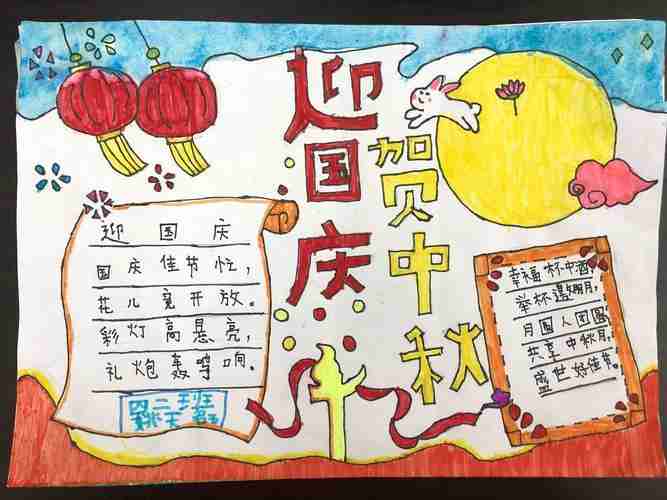 迎国庆
贺中秋
迎国庆
国庆佳节忙，
花儿竟开放。
彩灯高悬亮，
礼炮轰鸣响。
四二班
姚天
幸福杯中酒，
举杯邀明月，
月圆人团圆，
共享中秋月，
盛世好佳节。